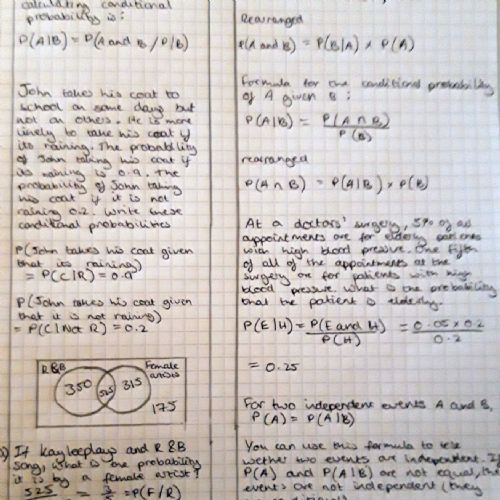 calculating conditional
probability is:
P(A|B) = P(A and B / P(B)
John takes his coat to
school on some days but
not on others. He is more
likely to take his coat if
its raining. The probability
of John taking his coat if
its raining is 0.9. The
probability of John taking
his coat if it is not
raining 0.2. Write these
conditional probabilities
P(John takes his coat given
that its raining)
= P(C|R) = 0.9
P(John takes his coat given
that it is not raining)
= P(C|Not R) = 0.2
R&B
Female
artists
350
525
315
175
If Kaylee plays and R&B
song, what is the probability
it is by a female artist?
525
= P(F/R)
Rearranged
P(A and B) = P(B|A) × P(A)
Formula for the conditional probability
of A given B:
P(A|B) = P(A ∩ B)
P(B)
rearranged
P(A ∩ B) = P(A|B) × P(B)
At a doctors' surgery, 5% of all
appointments are for elderly patients
with high blood pressure. One fifth
of all of the appointments at the
surgery are for patients with high
blood pressure. What is the probability
that the patient is elderly.
P(E|H) = P(E and H) = 0.05 × 0.2
P(H) 0.2
= 0.25
For two independent events A and B,
P(A) = P(A|B)
You can use this formula to see
wether two events are independent. If
P(A) and P(A|B) are not equal, the
events are not independent (they